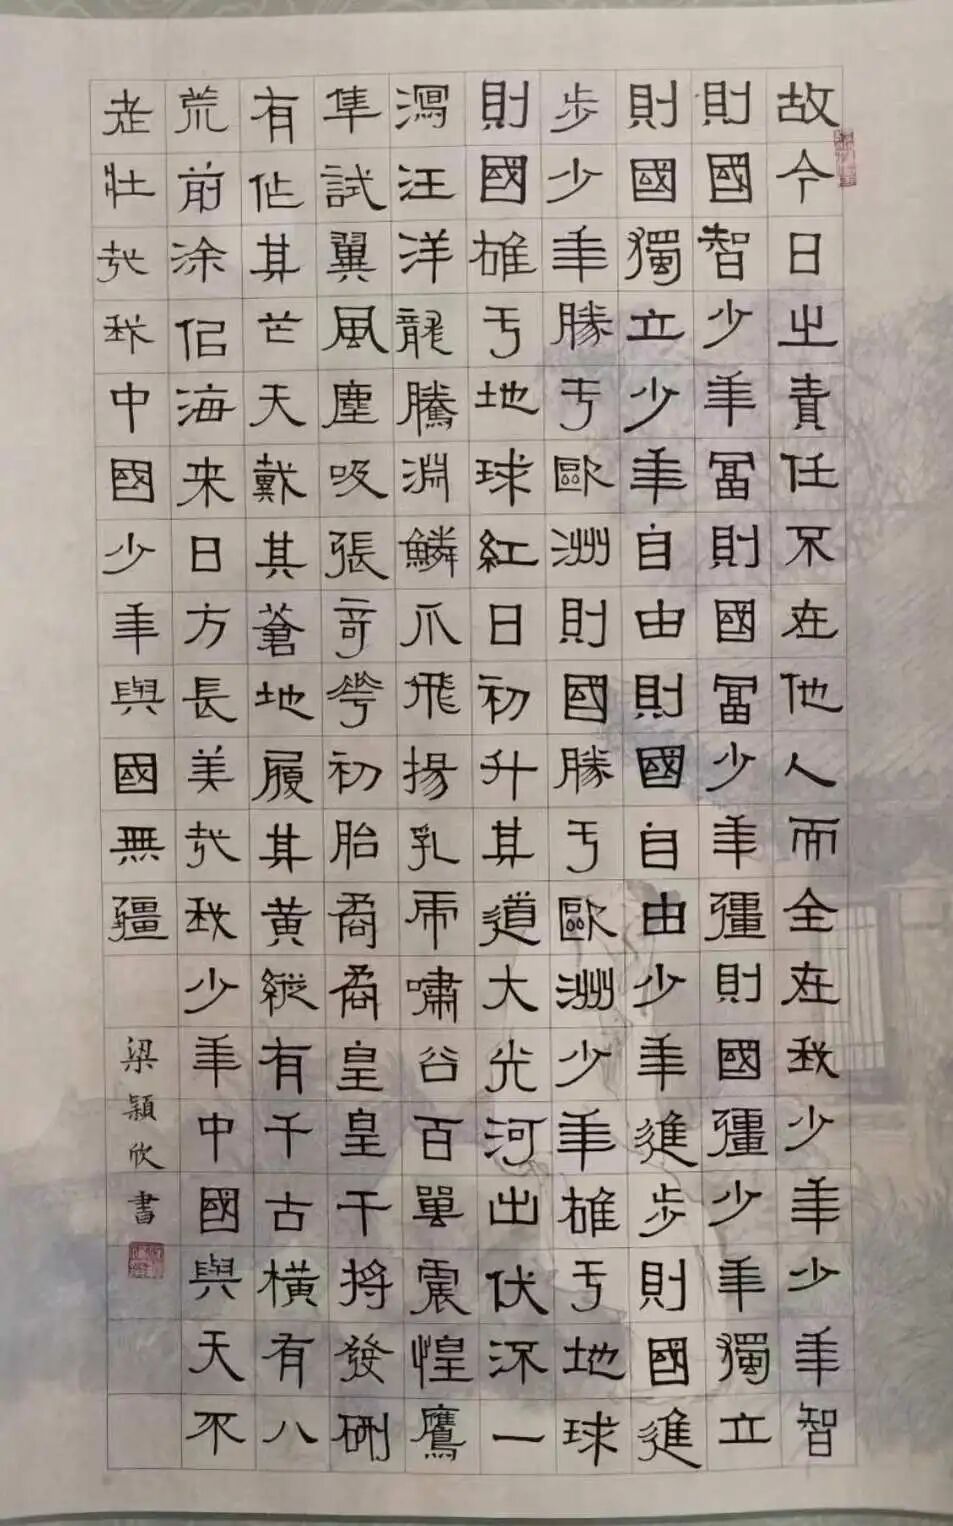 故今日之責任不在他人而全在我少年少年智
則國智少年冨則國冨少年彊則國彊少年獨立
則國獨立少年自由則國自由少年進步則國進
步少年勝于歐洲則國勝于歐洲少年雄于地球
則國雄于地球紅日初升其道大光河出伏流一
瀉汪洋龍騰淵鱗爪飛揚乳虎嘯谷百嘼震惶鷹
隼試翼風塵吸張奇花初胎矞矞皇皇干將發硎
有作其芒天戴其蒼地履其黄縱有千古橫有八
荒前涂佀海来日方長美哉我少年中國與天不
老壯哉我中國少年與國無疆
梁穎欣書